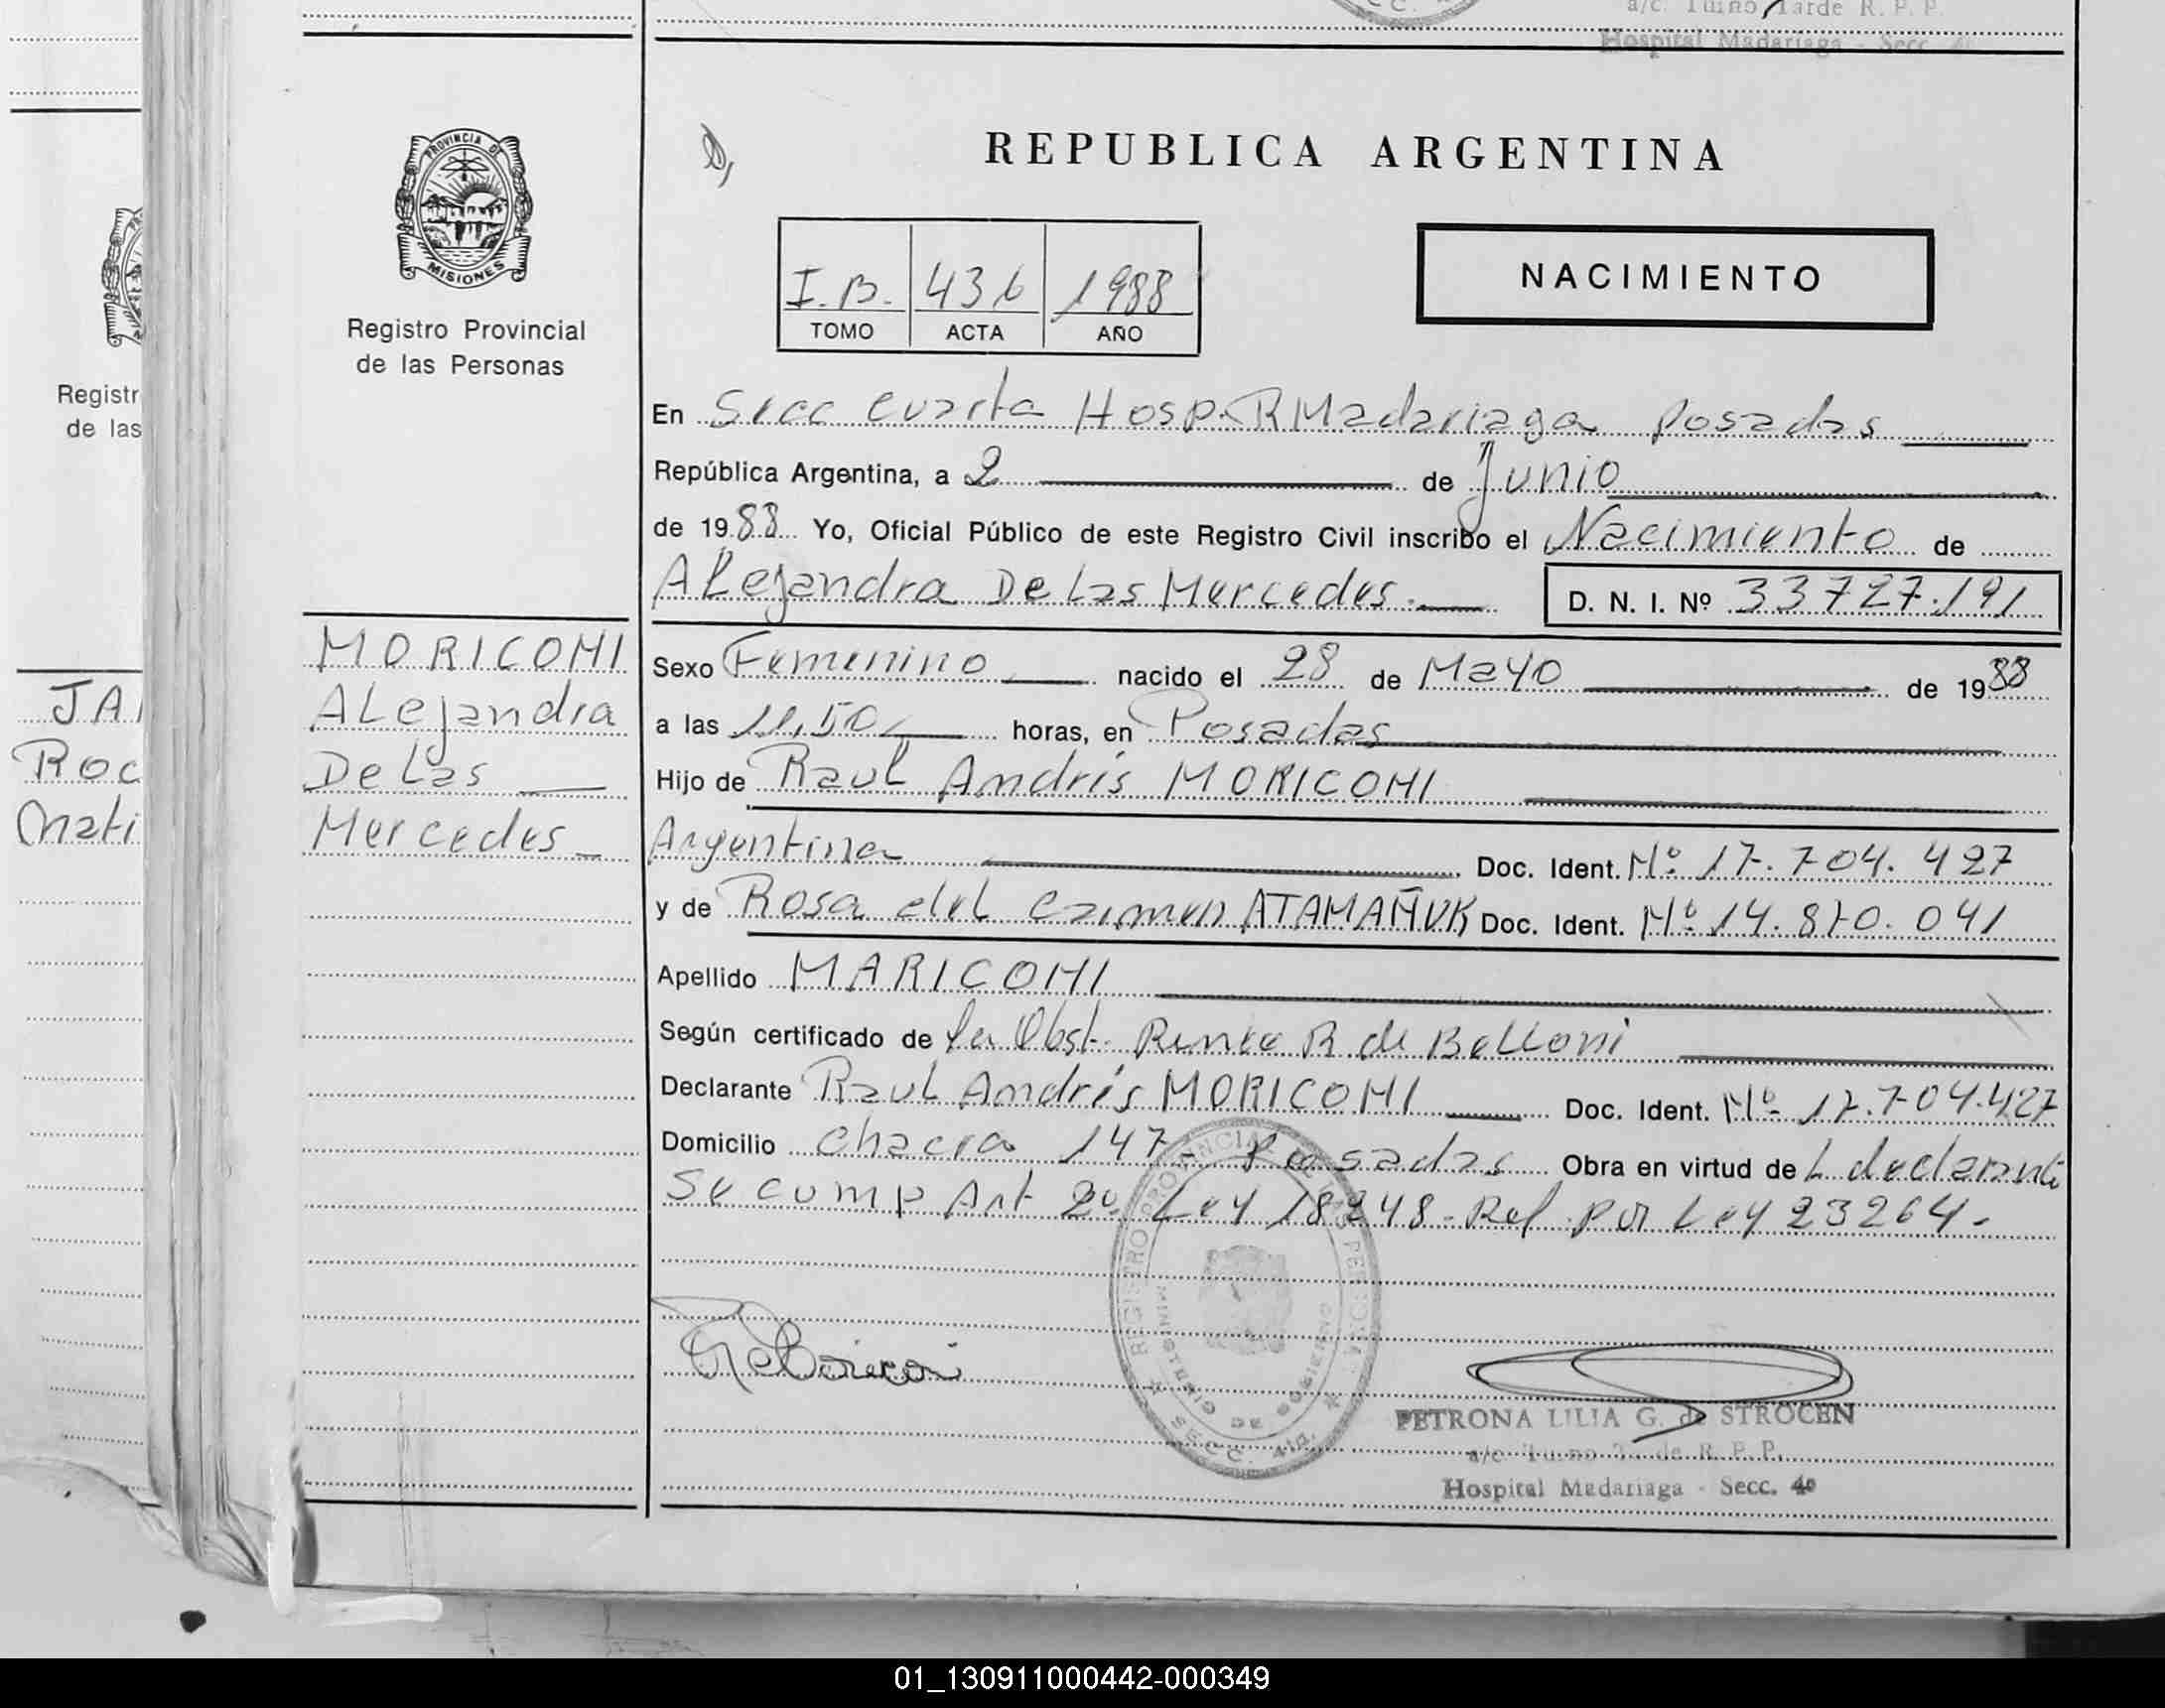 a/c. Turno Tarde R. P. P.
Hospital Madariaga - Secc. 4ª
PROVINCIA DE
MISIONES
Registro Provincial
de las Personas
REPUBLICA ARGENTINA
I.B. 436 1988
TOMO ACTA AÑO
NACIMIENTO
Registr
de las
En Secc cuarta Hosp. R Madariaga Posadas
República Argentina, a 2 de Junio
de 1988 Yo, Oficial Público de este Registro Civil inscribo el Nacimiento de
Alejandra De Las Mercedes.
D. N. I. Nº 33727.191
MORICONI
ALejandra
De Las
Mercedes
JA
Roc
mati
Sexo Femenino nacido el 28 de Mayo de 1988
a las 11,50 horas, en Posadas
Hijo de Raul Andrés MORICONI
Argentina Doc. Ident. Nº 17.704.427
y de Rosa del Carmen ATAMAÑUK Doc. Ident. Nº 14.870.041
Apellido MARICONI
Según certificado de la Obst. Renee R de Belloni
Declarante Raul Andrés MORICONI Doc. Ident. Nº 17.704.427
Domicilio Chacra 147 Posadas Obra en virtud de L declarante
Se cump Art 2º Ley 18248 - Ref por Ley 23264.
REGISTRO PROVINCIAL DE LAS PERSONAS
MINISTERIO DE GOBIERNO
SECC. 4ta.
PETRONA LILIA G. de STROCEN
a/c Turno Tarde R. P. P.
Hospital Madariaga - Secc. 4ª
01_130911000442-000349